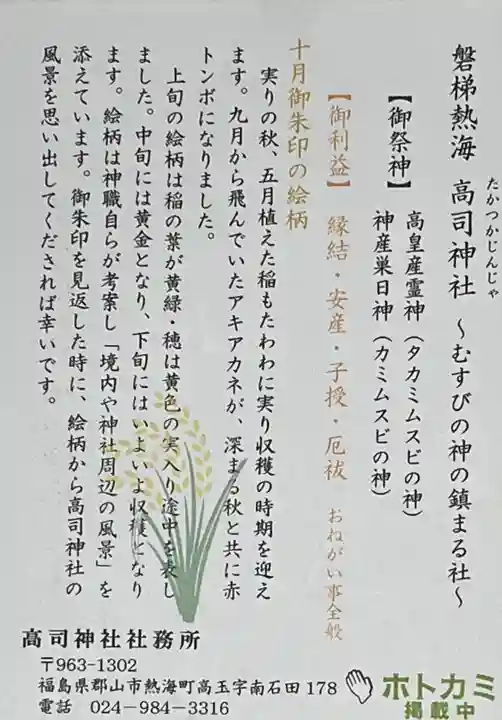 磐梯熱海 高司神社 ～むすびの神の鎮まる社～
たかつかじんじゃ
【御祭神】 高皇産霊神（タカミムスビの神）
神産巣日神（カミムスビの神）
【御利益】 縁結・安産・子授・厄祓 おねがい事全般
十月御朱印の絵柄
実りの秋、五月植えた稲もたわわに実り収穫の時期を迎え
ます。九月から飛んでいたアキアカネが、深まる秋と共に赤
トンボになりました。
上旬の絵柄は稲の葉が黄緑・穂は黄色の実入り途中を表し
ました。中旬には黄金となり、下旬にはいよいよ収穫となり
ます。絵柄は神職自らが考案し「境内や神社周辺の風景」を
添えています。御朱印を見返した時に、絵柄から高司神社の
風景を思い出してくだされば幸いです。
高司神社社務所
〒963-1302
福島県郡山市熱海町高玉字南石田178
電話 024-984-3316
ホトカミ
掲載中